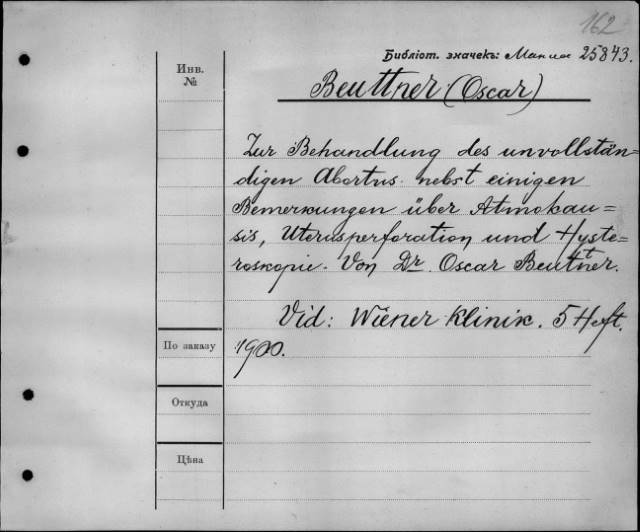 162
Библіот. значекъ: 25843.
Инв.
№
Beuttner (Oscar)
Zur Behandlung des unvollstän=
digen Abortus nebst einigen
Bemerkungen über Atmokau=
sis, Uterusperforation und Hyste=
roskopie. Von Dr. Oscar Beuttner.
Vid: Wiener Klinik. 5 Heft.
По заказу
1900.
Откуда
Цѣна